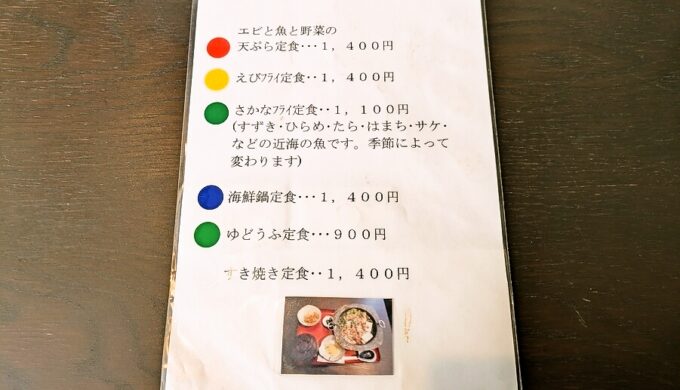 エビと魚と野菜の
天ぷら定食･･･１，４００円
えびﾌﾗｲ定食･･１，４００円
さかなﾌﾗｲ定食･･１，１００円
(すずき･ひらめ･たら･はまち･サケ･
などの近海の魚です。季節によって
変わります)
海鮮鍋定食･･･１，４００円
ゆどうふ定食･･･９００円
すき焼き定食･･１，４００円